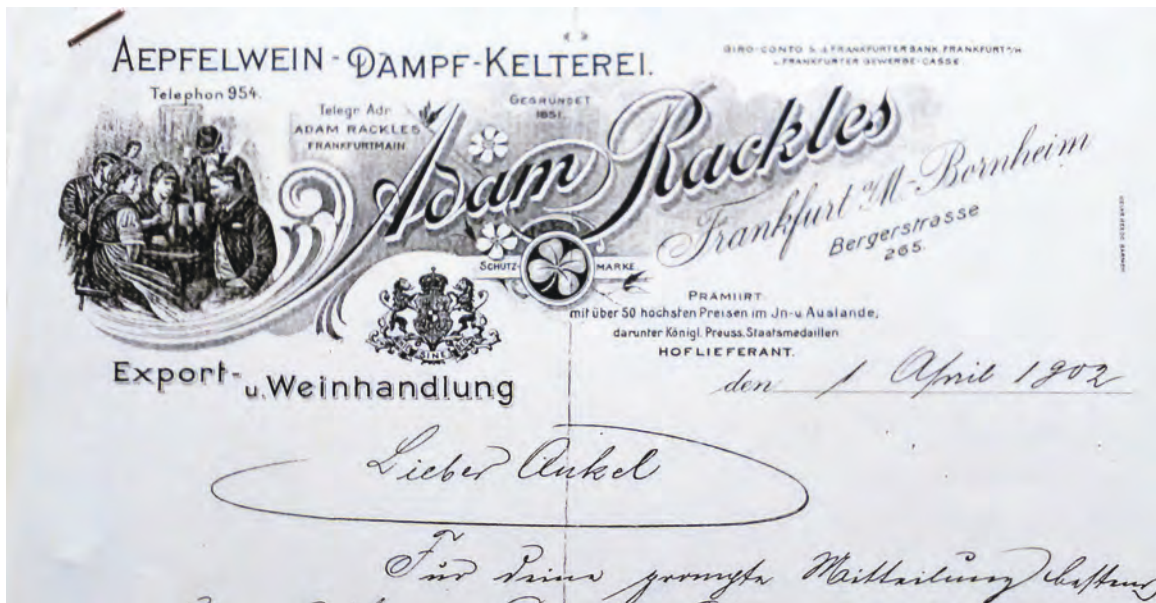 AEPFELWEIN-DAMPF-KELTEREI.
GIRO-CONTO b. d. FRANKFURTER BANK, FRANKFURT a/M.
u. FRANKFURTER GEWERBE-CASSE.
Telephon 954.
Telegr. Adr.
ADAM RACKLES
FRANKFURTMAIN.
GEGRÜNDET
1851.
Adam Rackles
Frankfurt a/M-Bornheim
Bergerstrasse
265.
SCHUTZ-MARKE
PRÄMIIRT
mit über 50 höchsten Preisen im Jn-u. Auslande,
darunter Königl. Preuss. Staatsmedaillen.
HOFLIEFERANT.
SINE
Export-u. Weinhandlung
den 1 April 1902
Lieber Onkel
Für deine prompte Mitteilung bestens